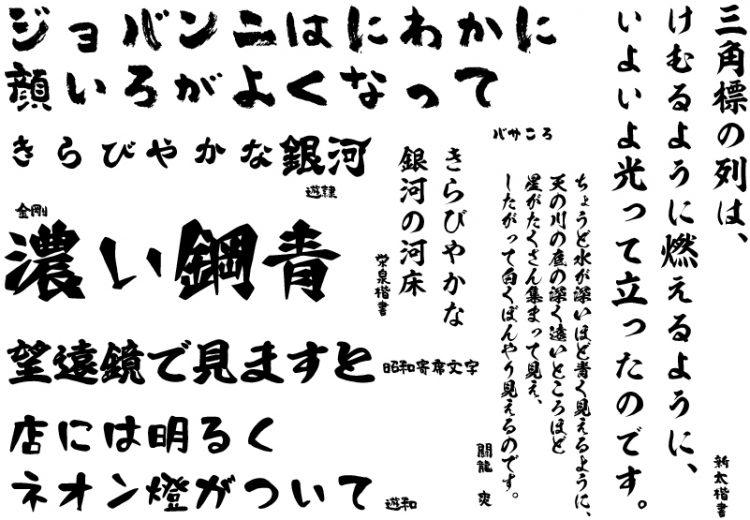 ジョバンニはにわかに
顔いろがよくなって
バサころ
きらびやかな銀河
遊隷
金剛
濃い鋼青
望遠鏡で見ますと
昭和寄席文字
店には明るく
ネオン燈がついて
遊和
三角標の列は、
けむるように燃えるように、
いよいよ光って立ったのです。
新太楷書
ちょうど水が深いほど青く見えるように、
天の川の底の深く遠いところほど
星がたくさん集まって見え、
したがって白くぼんやり見えるのです。
闘龍 爽
きらびやかな
銀河の河床
栄泉楷書